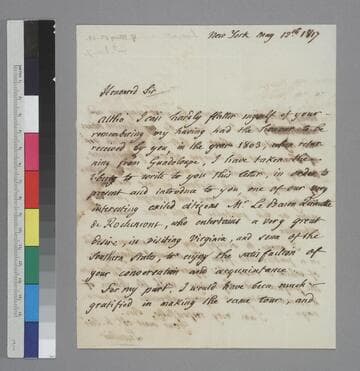 New York May 12th 1817
Honoured Sir
Altho' I can hardly flatter myself of your
remembering my having had the honour to be
received by you, in the year 1803, when retur
ning from Guadeloupe, I have taken the
liberty to write to you this letter, in order to
present and introduce to you one of our very
interesting exiled citizens Mr Le Baron
de Rochemont, who entertains a very great
desire, in visiting Virginia, and some of the
Southern States, to enjoy the satisfaction of
your conversation and acquaintance
For my part, I would have been much
gratified in making the same tour, and